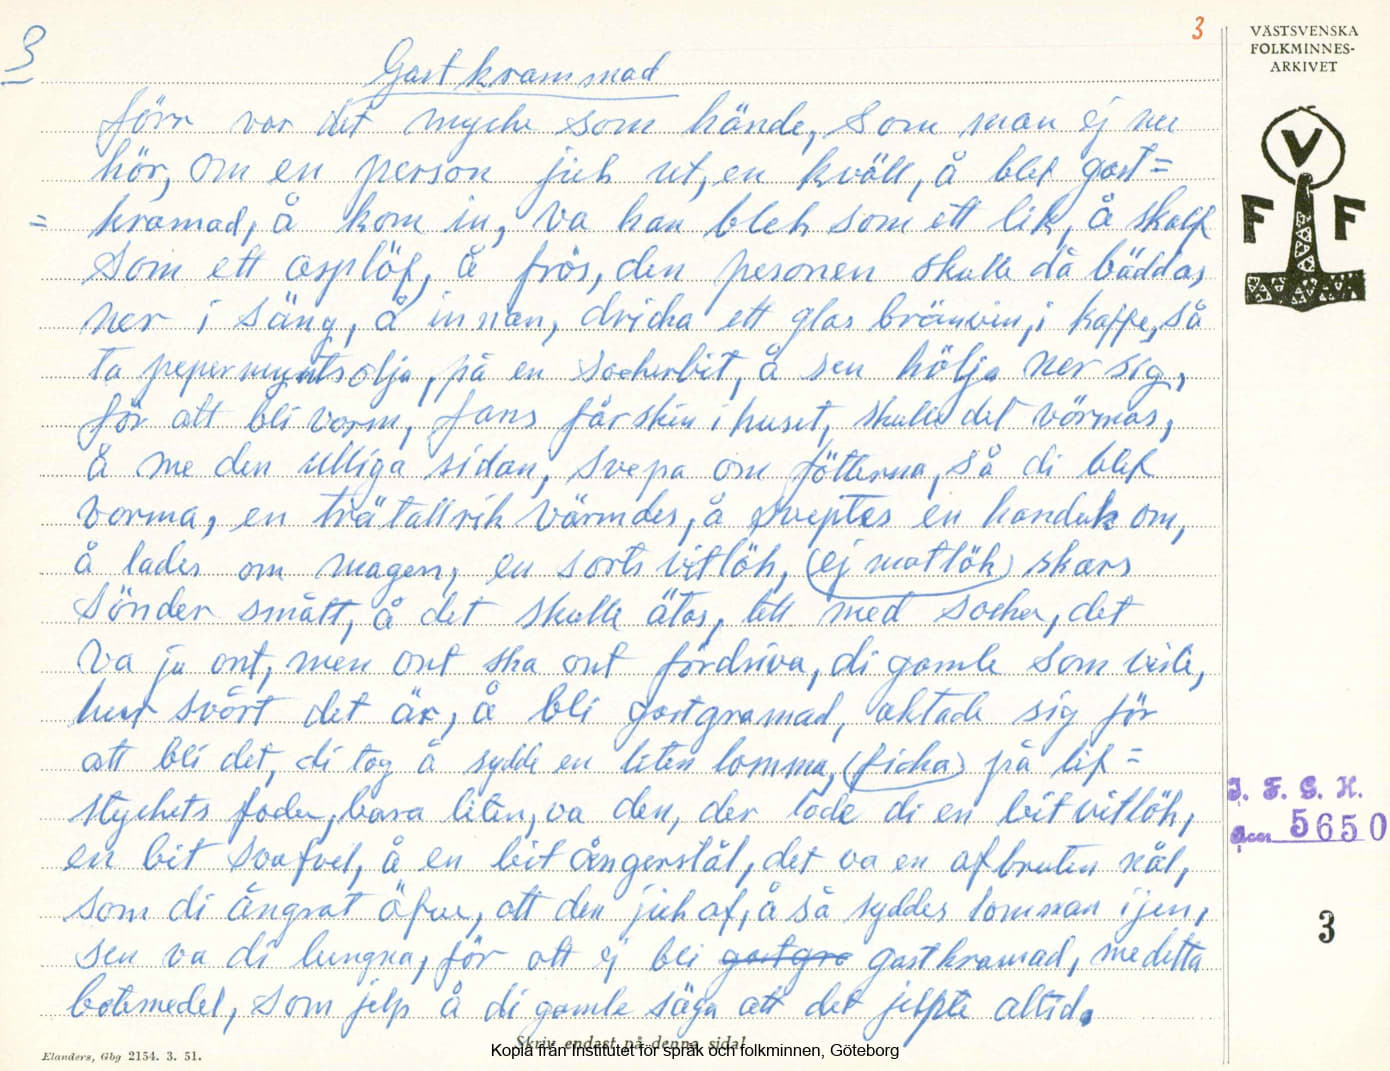 3
3
VÄSTSVENSKA
FOLKMINNES-
ARKIVET
Gastkrammad
förr var det myche som hände, som man ej nu
hör, om en person jick ut, en kväll, å blef gast=
=kramad, å kom in, va han blek som ett lik, å skalf
som ett asplöf, å frös, den pesonen skulle då bäddas,
ner i säng, å innan, dricka ett glas bränvin, i kaffe, så
ta pepermyntsolja, på en sockerbit, å sen hölja ner sig,
för att bli varm, fans fårskin i huset, skulle det värmas,
å me den ulliga sidan, svepa om fötterna, så di blef
varma, en trätallrik värmdes, å sveptes en handuk om,
å lades om magen, en sorts vitlök, (ej matlök) skars
sönder smått, å det skulle ätas, lett med socker, det
va ju ont, men ont ska ont fördriva, di gamle som viste,
hur svårt det är, å bli gastgramad, aktade sig för
att bli det, di tog å sydde en liten lomma, (ficka) på lif=
styckets foder, bara liten, va den, der lade di en bit vitlök,
en bit svafvel, å en bit ångerstål, det va en afbruten nål,
som di ångrat öfver, att den jick af, å så syddes lomman ijen,
sen va di lungna, för att ej bli gastgra gastkramad, me detta
botemedel, som jelp å di gamle säga att det jelpte altid.
V
F F
J. F. G. H.
5650
3
Elanders, Gbg 2154. 3. 51.
Skriv endast på denna sida!
Kopia från Institutet för språk och folkminnen, Göteborg